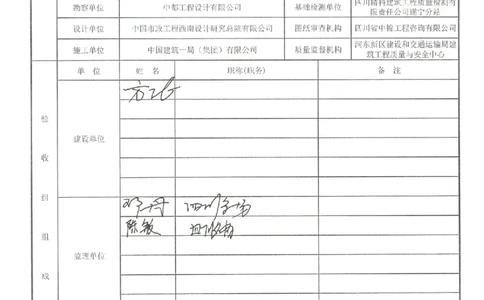 勘察单位 中都工程设计有限公司 基础检测单位 限责任公司遂宁分站
设计单位 中国市政工程西南设计研究总院有限公司 图纸审查机构 四川省中锦工程咨询有限公司
施工单位 中国建筑一局（集团）有限公司 质量监督机构 河东新区建设和交通运输局建筑工程质量与安全中心
单 位 姓 名 职称(职务) 备 注
验
收
组
组
成
建设单位
监理单位
邓丹
陈敏